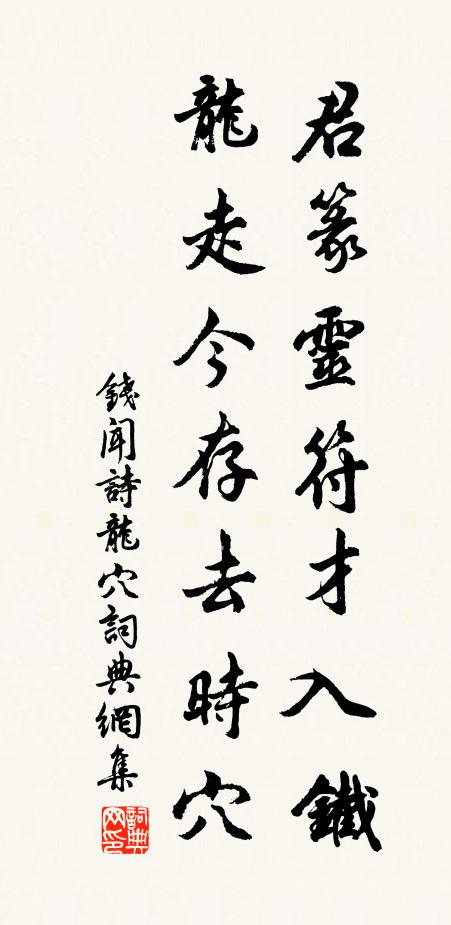 君篆靈符才入鐵
龍走今存去時穴
錢聞詩龍穴詞典網集
詞典網印